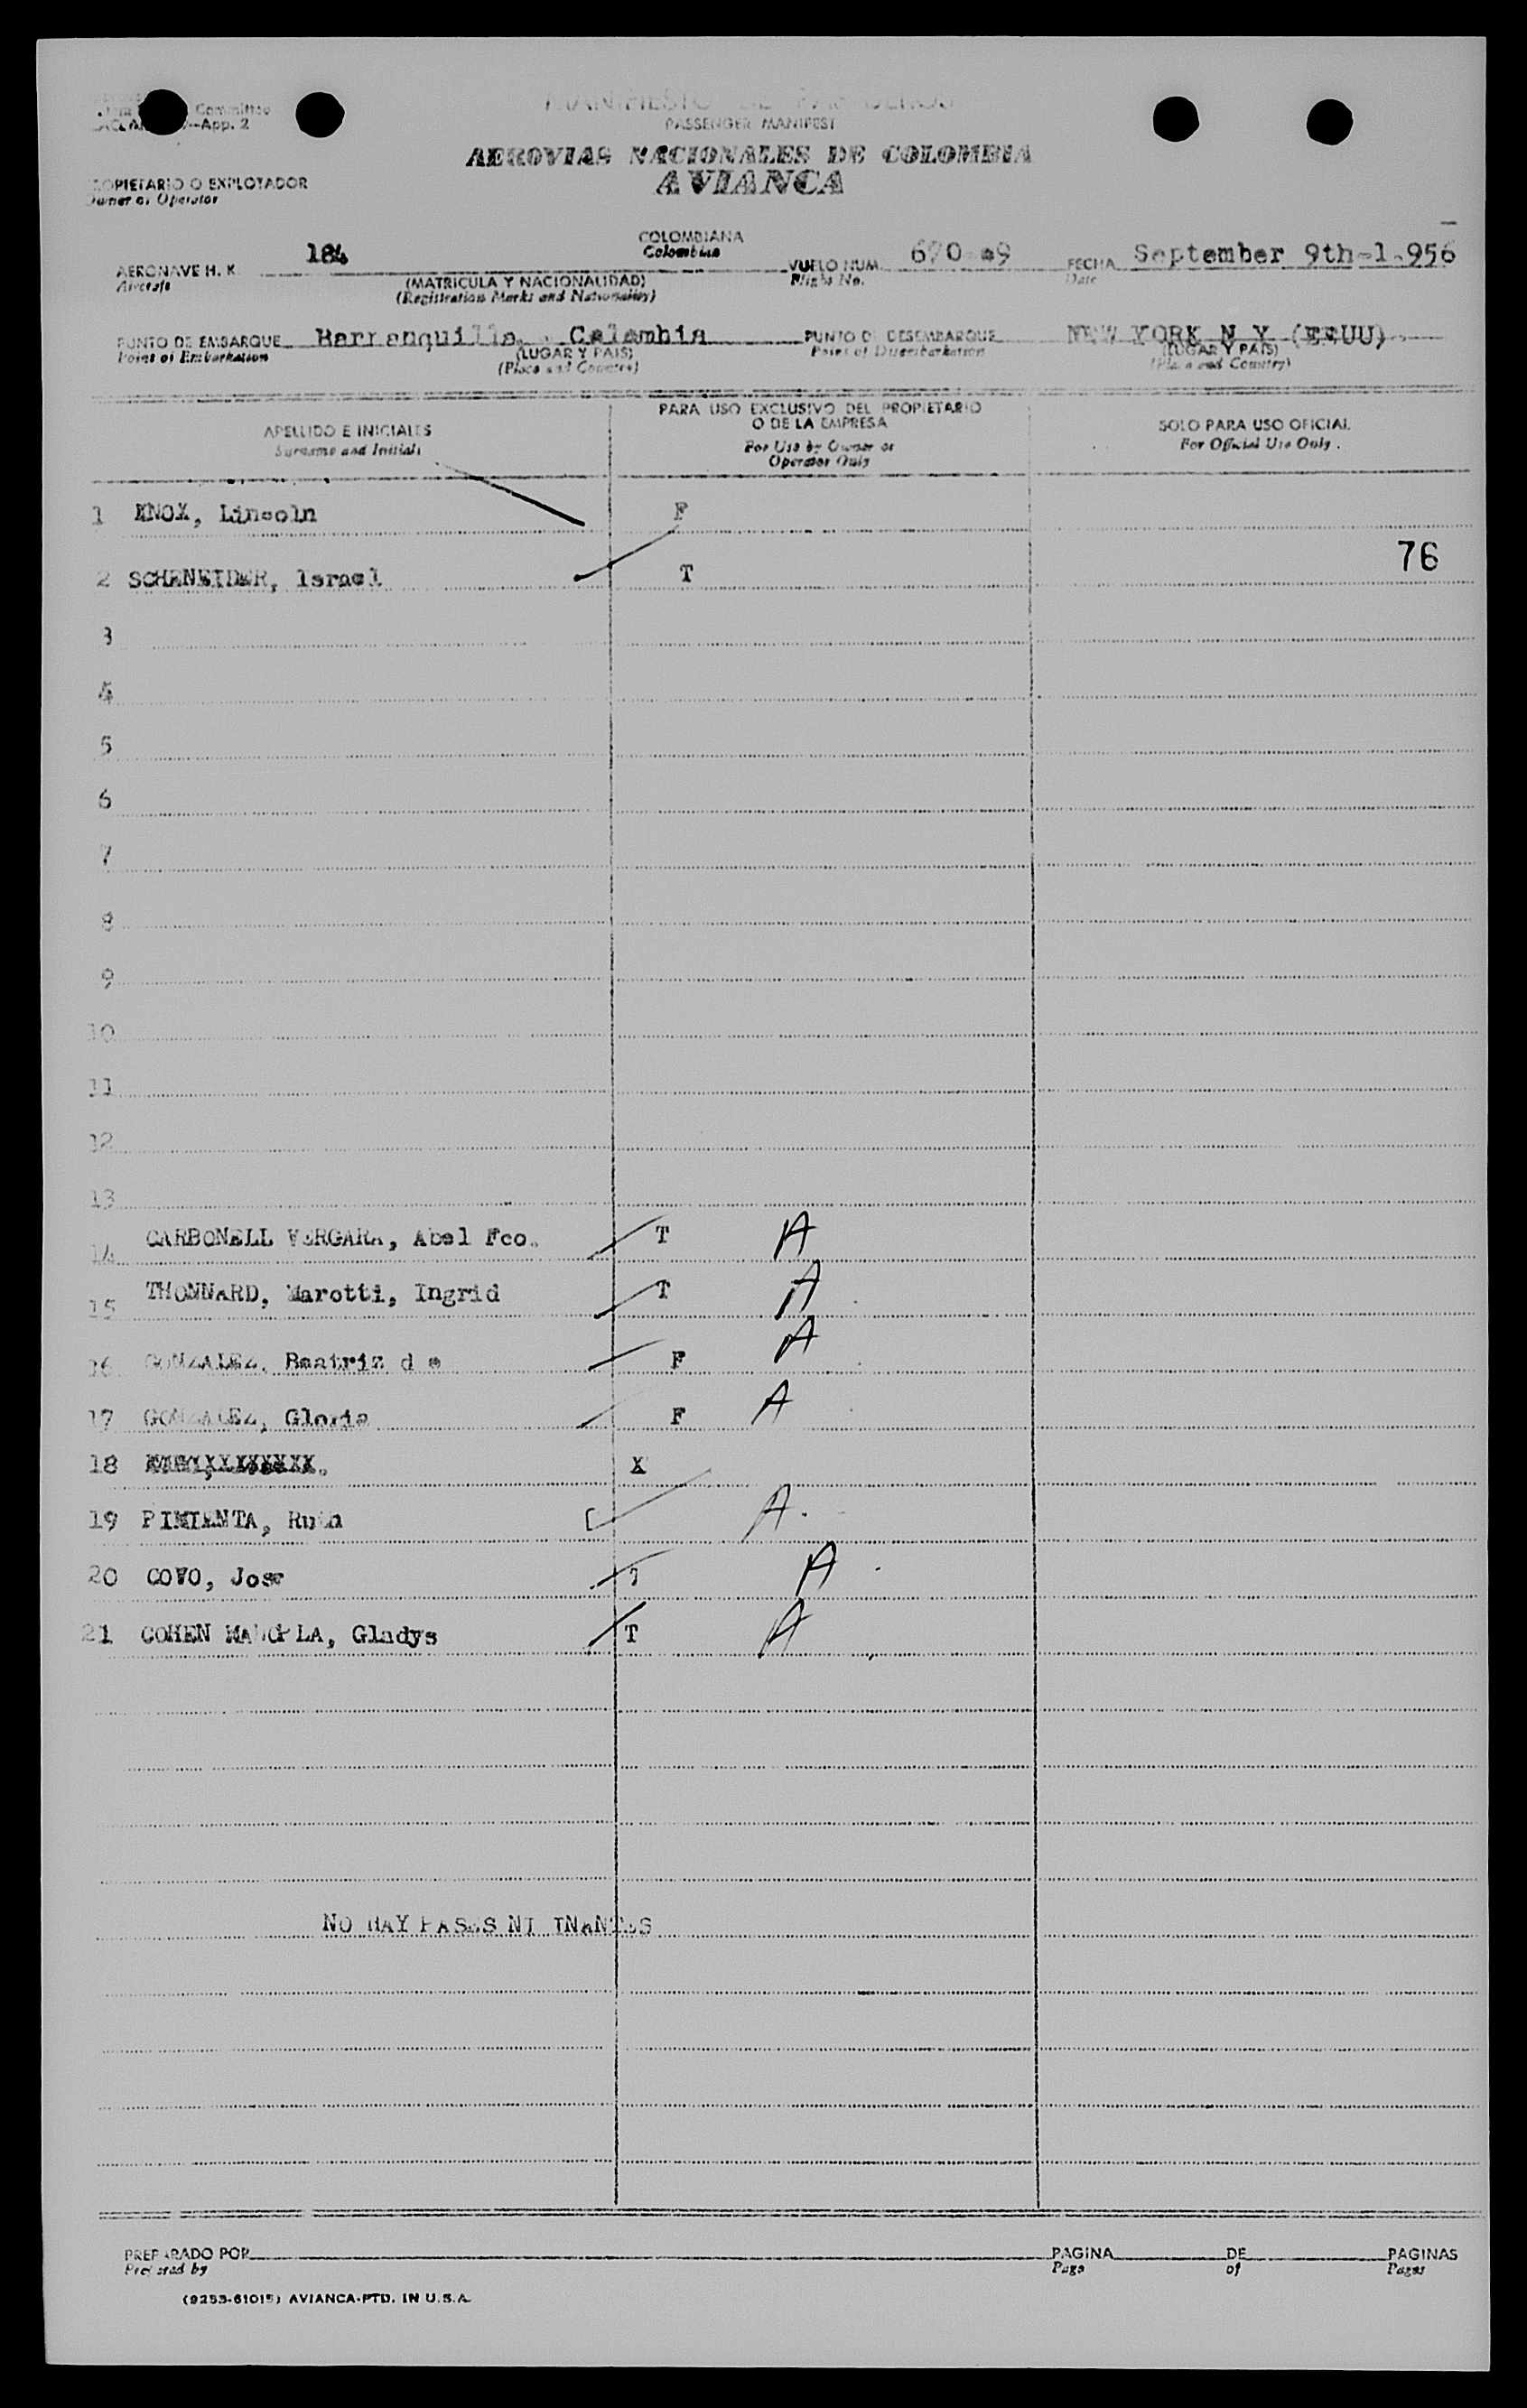 Committee
App. 2
PASSENGER MANIFEST
AEROVIAS NACIONALES DE COLOMBIA
AVIANCA
O EXPLOTADOR
Owner or Operator
AERONAVE H. K. 184
Aircraft
COLOMBIANA
Colombian
(MATRICULA Y NACIONALIDAD)
(Registration Marks and Nationality)
VUELO NUM.
Flight No.
FECHA September 9th-1.956
Date
PUNTO DE EMBARQUE Barranquilla, Colombia
Point of Embarkation
(LUGAR Y PAIS)
(Place and Country)
PUNTO DE DESEMBARQUE NEW YORK N Y (EEUU).
Point of Disembarkation
(LUGAR Y PAIS)
(Place and Country)
APELLIDO E INICIALES
Surname and Initials
PARA USO EXCLUSIVO DEL PROPIETARIO
O DE LA EMPRESA
For Use by Owner or
Operator Only
SOLO PARA USO OFICIAL
For Official Use Only.
1 KNOX, Lincoln F
76
2 SCHENEIDER, Israel T
3
4
5
6
7
8
9
10
11
12
13
14 CARBONELL VERGARA, Abel Fco. T A
15 THONNARD, Marotti, Ingrid T A
16 GONZALEZ, Beatriz d e F A
17 GONZALEZ, Gloria F A
18 X
19 PIMIENTA, Ruth A.
20 COVO, Jose A
21 COHEN Gladys T A
NO HAY PASES NI
PREPARADO POR
Prepared by
PAGINA DE PAGINAS
Page of Pages
(9253-61015) AVIANCA-PTD. IN U.S.A.